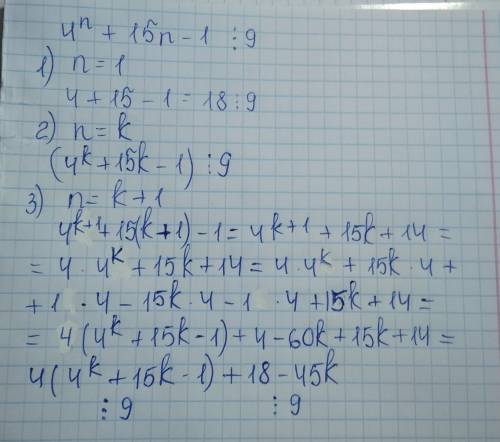 4ⁿ + 15n - 1 ⋮ 9
1) n = 1
4 + 15 - 1 = 18 ⋮ 9
2) n = k
(4ᵏ + 15k - 1) ⋮ 9
3) n = k + 1
4ᵏ⁺¹ + 15(k+1) - 1 = 4ᵏ⁺¹ + 15k + 14 =
= 4 · 4ᵏ + 15k + 14 = 4 · 4ᵏ + 15k · 4 +
+ 1 · 4 - 15k · 4 - 1 · 4 + 15k + 14 =
= 4(4ᵏ + 15k - 1) + 4 - 60k + 15k + 14 =
4(4ᵏ + 15k - 1) + 18 - 45k
⋮ 9 ⋮ 9